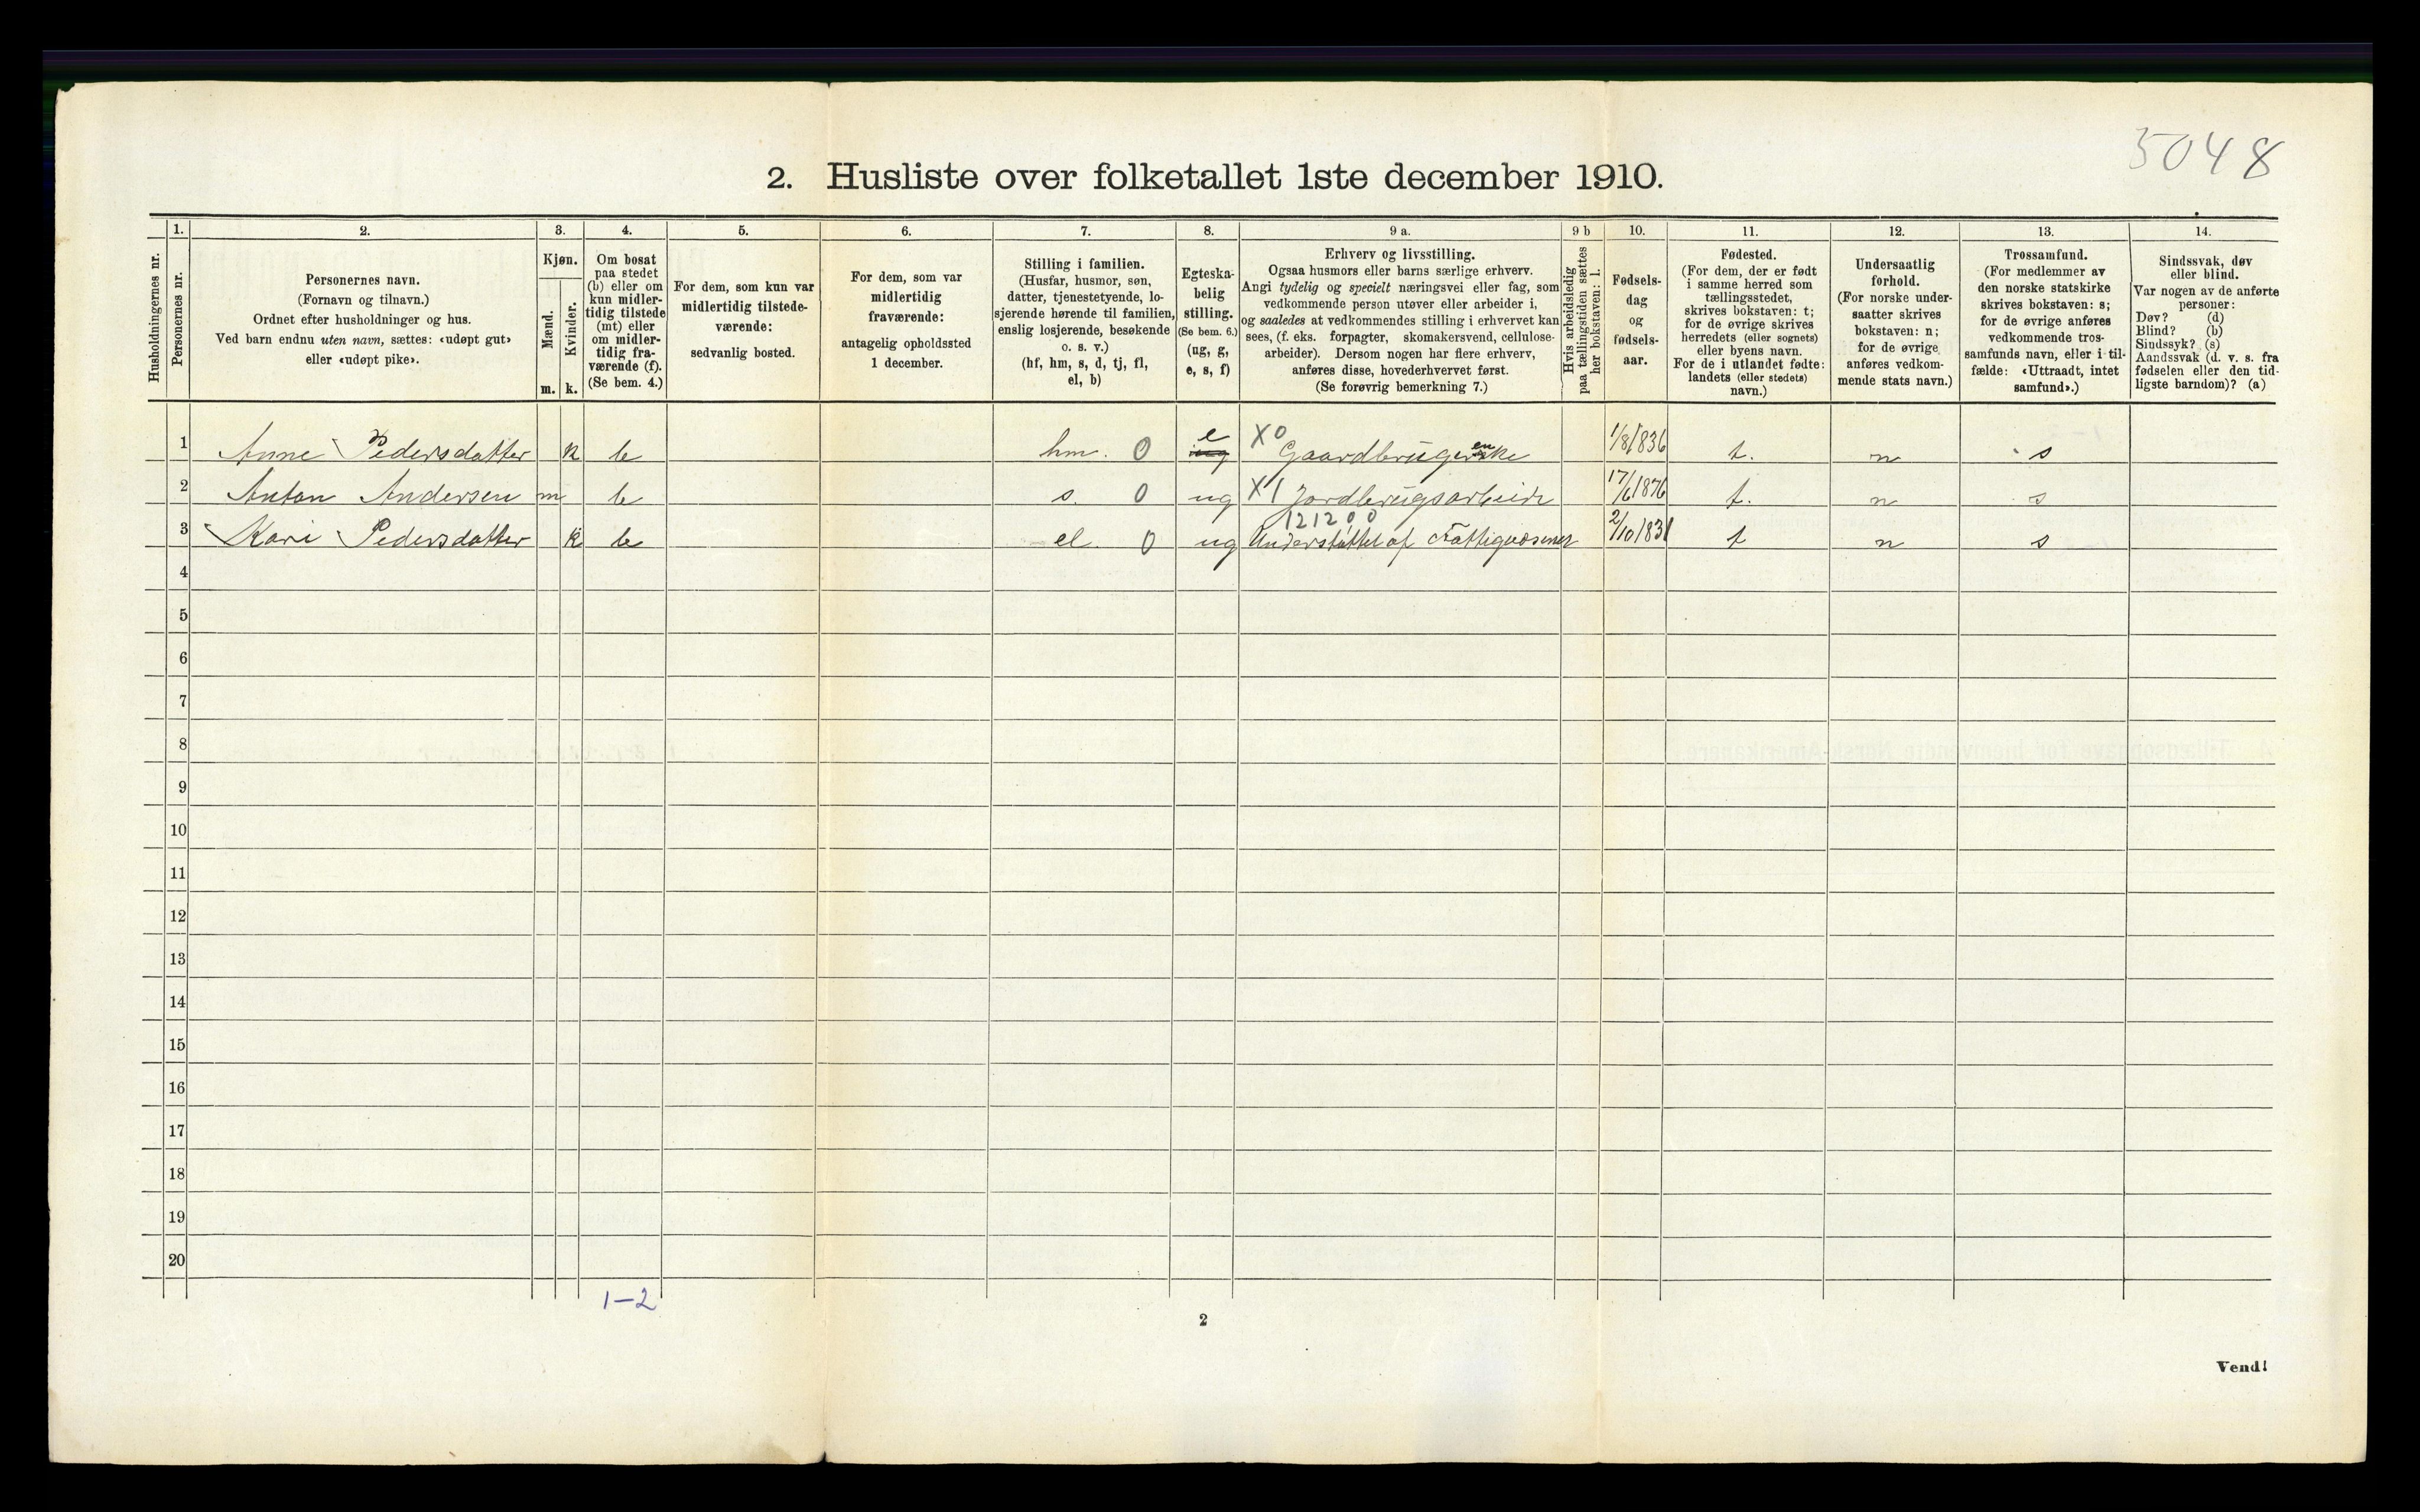 5048
2. Husliste over folketallet 1ste december 1910.
Husholdningernes nr.
1.
Personernes nr.
2.
Personernes navn.
(Fornavn og tilnavn.)
Ordnet efter husholdninger og hus.
Ved barn endnu uten navn, sættes: «udøpt gut»
eller «udøpt pike».
3.
Kjøn.
Mænd.
m.
Kvinder.
k.
4.
Om bosat
paa stedet
(b) eller om
kun midler-
tidig tilstede
(mt) eller
om midler-
tidig fra-
værende (f).
(Se bem. 4.)
5.
For dem, som kun var
midlertidig tilstede-
værende:
sedvanlig bosted.
6.
For dem, som var
midlertidig
fraværende:
antagelig opholdssted
1 december.
7.
Stilling i familien.
(Husfar, husmor, søn,
datter, tjenestetyende, lo-
sjerende hørende til familien,
enslig losjerende, besøkende
o. s. v.)
(hf, hm, s, d, tj, fl,
el, b)
8.
Egteska-
belig
stilling.
(Se bem. 6.)
(ug, g,
e, s, f)
9 a.
Erhverv og livsstilling.
Ogsaa husmors eller barns særlige erhverv.
Angi tydelig og specielt næringsvei eller fag, som
vedkommende person utøver eller arbeider i,
og saaledes at vedkommendes stilling i erhvervet kan
sees, (f. eks. forpagter, skomakersvend, cellulose-
arbeider). Dersom nogen har flere erhverv,
anføres disse, hovederhvervet først.
(Se forøvrig bemerkning 7.)
9 b
Hvis arbeidsledig
paa tællingstiden sættes
her bokstaven: l.
10.
Fødsels-
dag
og
fødsels-
aar.
11.
Fødested.
(For dem, der er født
i samme herred som
tællingsstedet,
skrives bokstaven: t;
for de øvrige skrives
herredets (eller sognets)
eller byens navn.
For de i utlandet fødte:
landets (eller stedets)
navn.)
12.
Undersaatlig
forhold.
(For norske under-
saatter skrives
bokstaven: n;
for de øvrige
anføres vedkom-
mende stats navn.)
13.
Trossamfund.
(For medlemmer av
den norske statskirke
skrives bokstaven: s;
for de øvrige anføres
vedkommende tros-
samfunds navn, eller i til-
fælde: «Uttraadt, intet
samfund».)
14.
Sindssvak, døv
eller blind.
Var nogen av de anførte
personer:
Døv? (d)
Blind? (b)
Sindssyk? (s)
Aandssvak (d. v. s. fra
fødselen eller den tid-
ligste barndom)? (a)
1 Anne Pedersdatter k b hm. 0 ug e X0 Gaardbrugerske en 1/8 1836 t. n s
2 Anton Andersen m b s. 0 ug X1 Jordbrugsarbeide 17/6 1876 t. n s
121200
3 Kari Pedersdatter k b el. 0 ug Understøttet af Fattigvæsenet 2/10 1831 t n s
4
5
6
7
8
9
10
11
12
13
14
15
16
17
18
19
20
1-2
2
Vend!